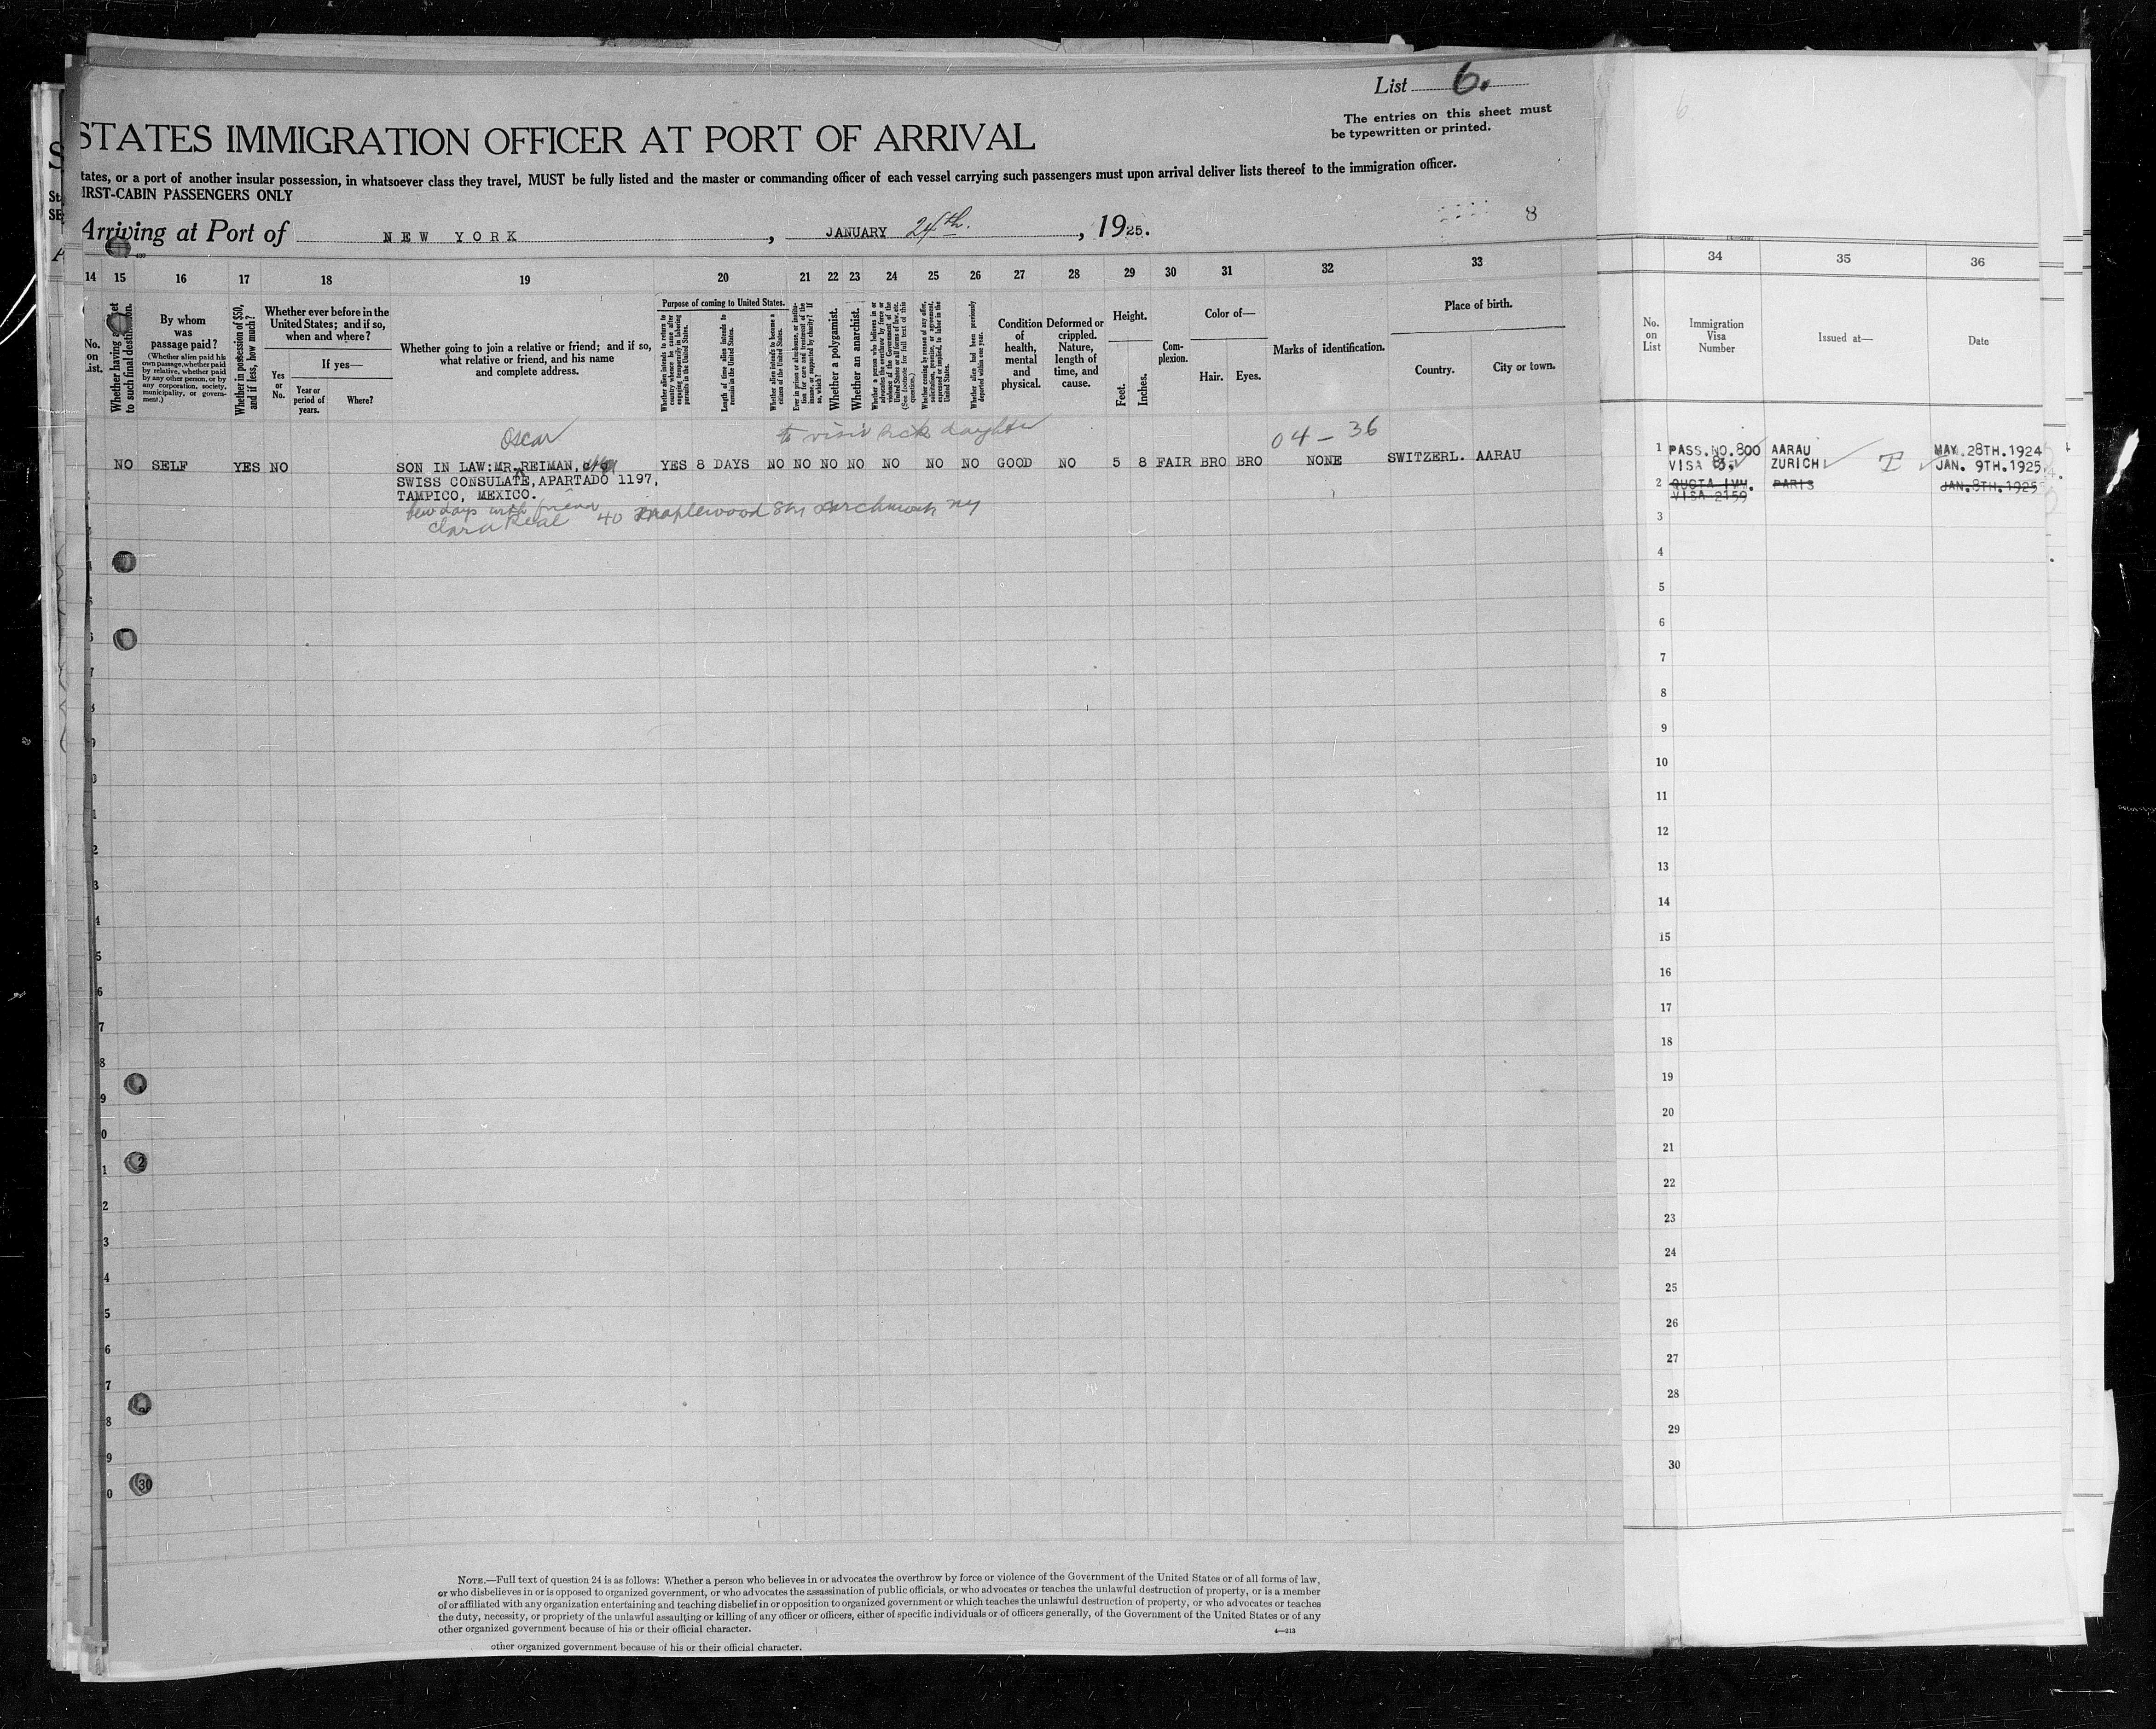 List 6.
The entries on this sheet must
be typewritten or printed.
STATES IMMIGRATION OFFICER AT PORT OF ARRIVAL
tates, or a port of another insular possession, in whatsoever class they travel, MUST be fully listed and the master or commanding officer of each vessel carrying such passengers must upon arrival deliver lists thereof to the immigration officer.
IRST-CABIN PASSENGERS ONLY
Arriving at Port of NEW YORK, JANUARY 24th., 1925.
8
14 15 16 17 18 19 20 21 22 23 24 25 26 27 28 29 30 31 32 33 34 35 36
No. on List.
Whether having
to such final destination.
By whom was passage paid?
(Whether alien paid his own passage, whether paid by relative, whether paid by any other person, or by any corporation, society, municipality, or government.)
Whether in possession of $50, and if less, how much?
Whether ever before in the United States; and if so, when and where?
Yes or No.
If yes—
Year or period of years.
Where?
Whether going to join a relative or friend; and if so, what relative or friend, and his name and complete address.
Purpose of coming to United States.
Whether alien intends to return to country whence he came after engaging temporarily in laboring pursuits in the United States.
Length of time alien intends to remain in the United States.
Whether alien intends to become a citizen of the United States.
Ever in prison or almshouse, or institution for care and treatment of the insane, or supported by charity? If so, which?
Whether a polygamist.
Whether an anarchist.
Whether a person who believes in or advocates the overthrow by force or violence of the Government of the United States or all forms of law, etc. (See footnote for full text of this question.)
Whether coming by reason of any offer, solicitation, promise, or agreement, expressed or implied, to labor in the United States.
Whether alien had been previously deported within one year.
Condition of health, mental and physical.
Deformed or crippled. Nature, length of time, and cause.
Height.
Feet.
Inches.
Complexion.
Color of—
Hair.
Eyes.
Marks of identification.
Place of birth.
Country.
City or town.
No. on List
Immigration Visa Number
Issued at—
Date
Oscar
to visit sick daughter
04 - 36
NO SELF YES NO SON IN LAW: MR. REIMAN, YES 8 DAYS NO NO NO NO NO NO NO GOOD NO 5 8 FAIR BRO BRO NONE SWITZERL. AARAU
SWISS CONSULATE, APARTADO 1197,
TAMPICO, MEXICO.
few days with friend
Clara Real 40 Maplewood St Larchmont NY
1 PASS. NO. 800 AARAU MAY. 28TH. 1924
VISA 83. ZURICH T JAN. 9TH. 1925
2 QUOTA IMM. PARIS JAN. 8TH. 1925
VISA 2159
3
4
5
6
7
8
9
10
11
12
13
14
15
16
17
18
19
20
21
22
23
24
25
26
27
28
29
30
NOTE.—Full text of question 24 is as follows: Whether a person who believes in or advocates the overthrow by force or violence of the Government of the United States or of all forms of law,
or who disbelieves in or is opposed to organized government, or who advocates the assassination of public officials, or who advocates or teaches the unlawful destruction of property, or is a member
of or affiliated with any organization entertaining and teaching disbelief in or opposition to organized government or which teaches the unlawful destruction of property, or who advocates or teaches
the duty, necessity, or propriety of the unlawful assaulting or killing of any officer or officers, either of specific individuals or of officers generally, of the Government of the United States or of any
other organized government because of his or their official character.
4—213
other organized government because of his or their official character.